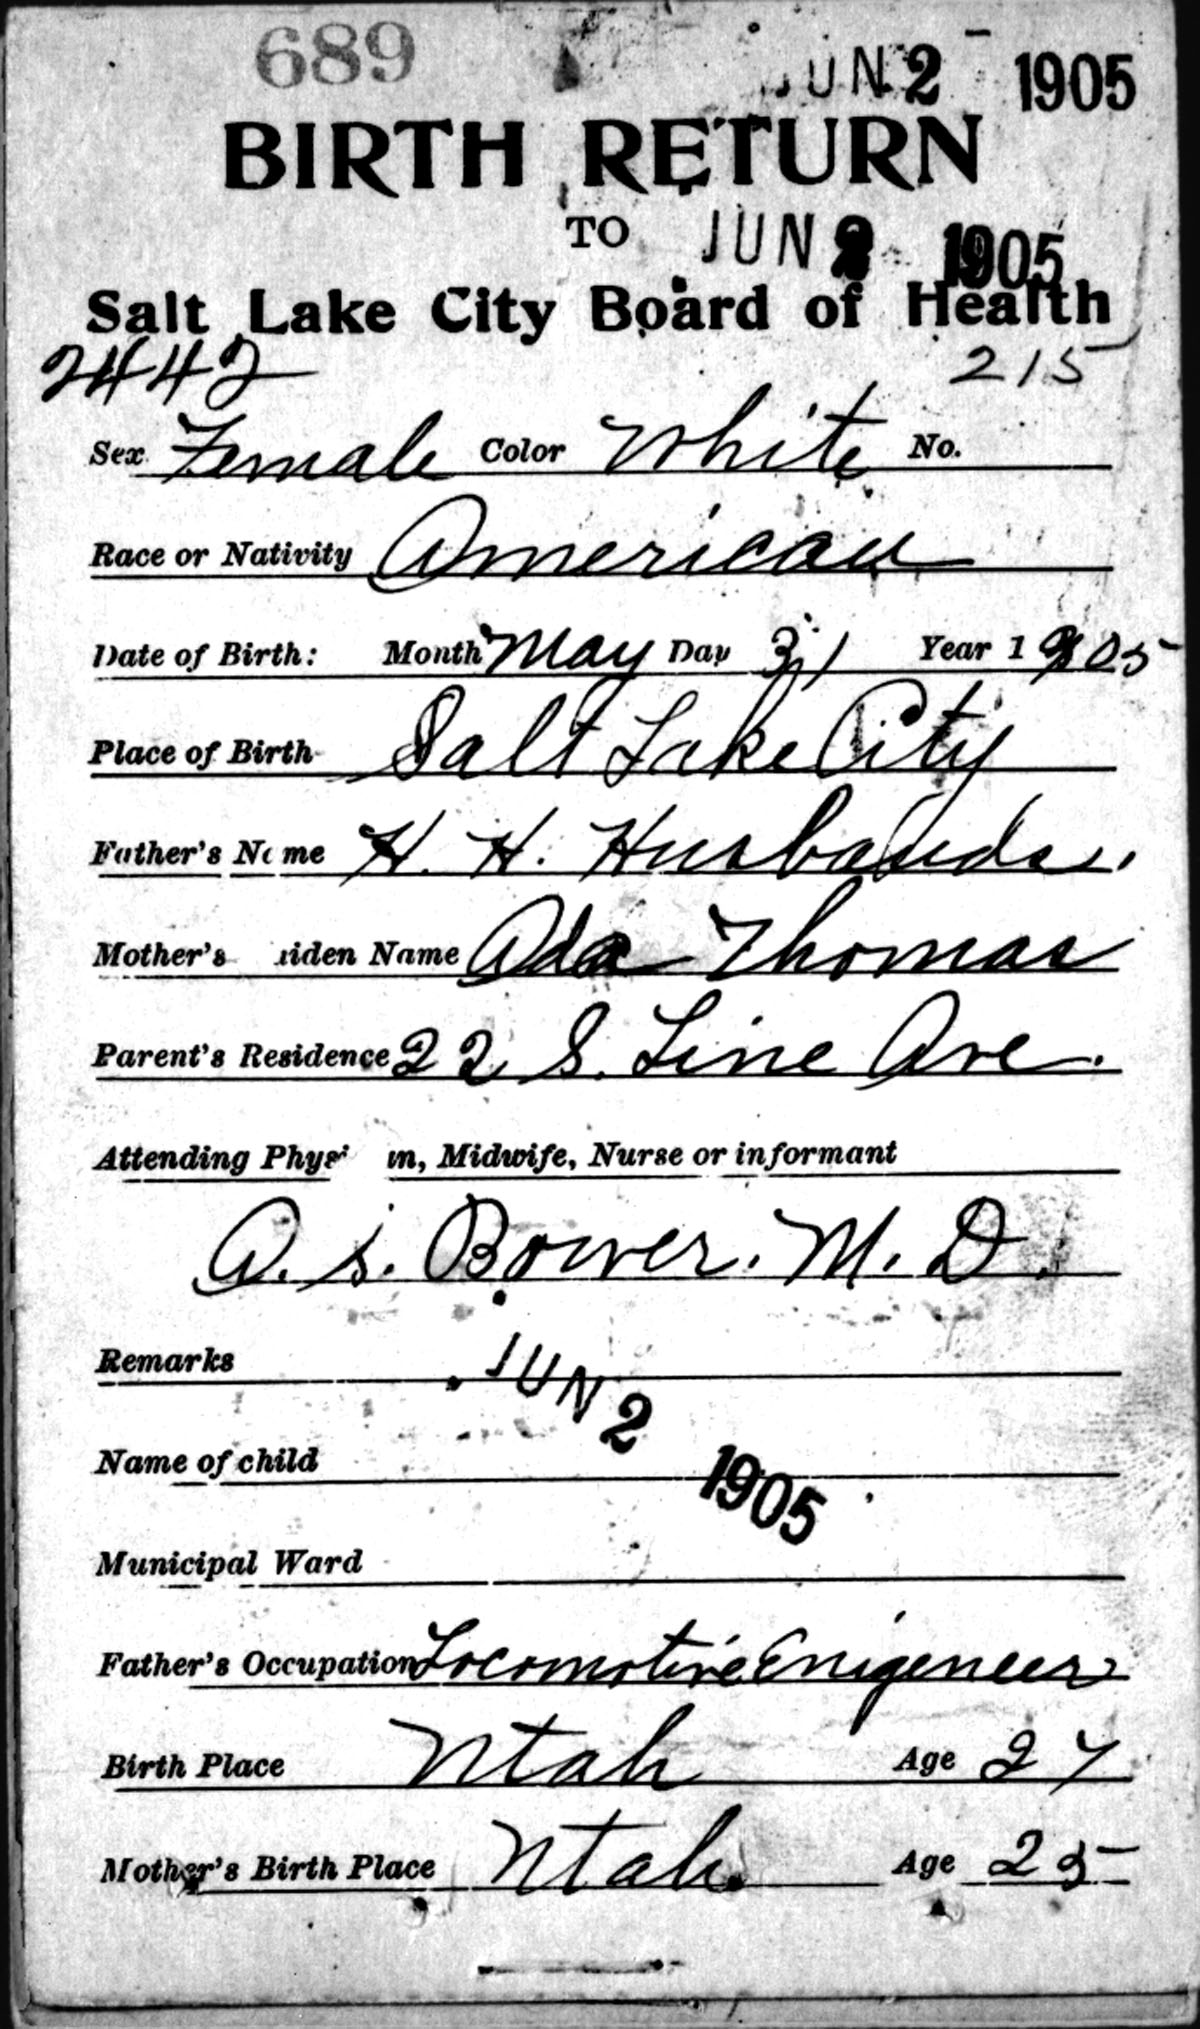 689
JUN 2 1905
BIRTH RETURN
TO JUN 2 1905
Salt Lake City Board of Health
2442 215
Sex Female Color White No.
Race or Nativity American
Date of Birth: Month May Day 31 Year 1905
Place of Birth Salt Lake City
Father's Name H. H. Husbands.
Mother's iden Name Ada Thomas
Parent's Residence 22 S. Line Ave.
Attending Physi n, Midwife, Nurse or informant
A. S. Bower. M. D.
Remarks
JUN 2 1905
Name of child
Municipal Ward
Father's Occupation Locomotive Enigeneer
Birth Place Utah Age 27
Mother's Birth Place Utah Age 25